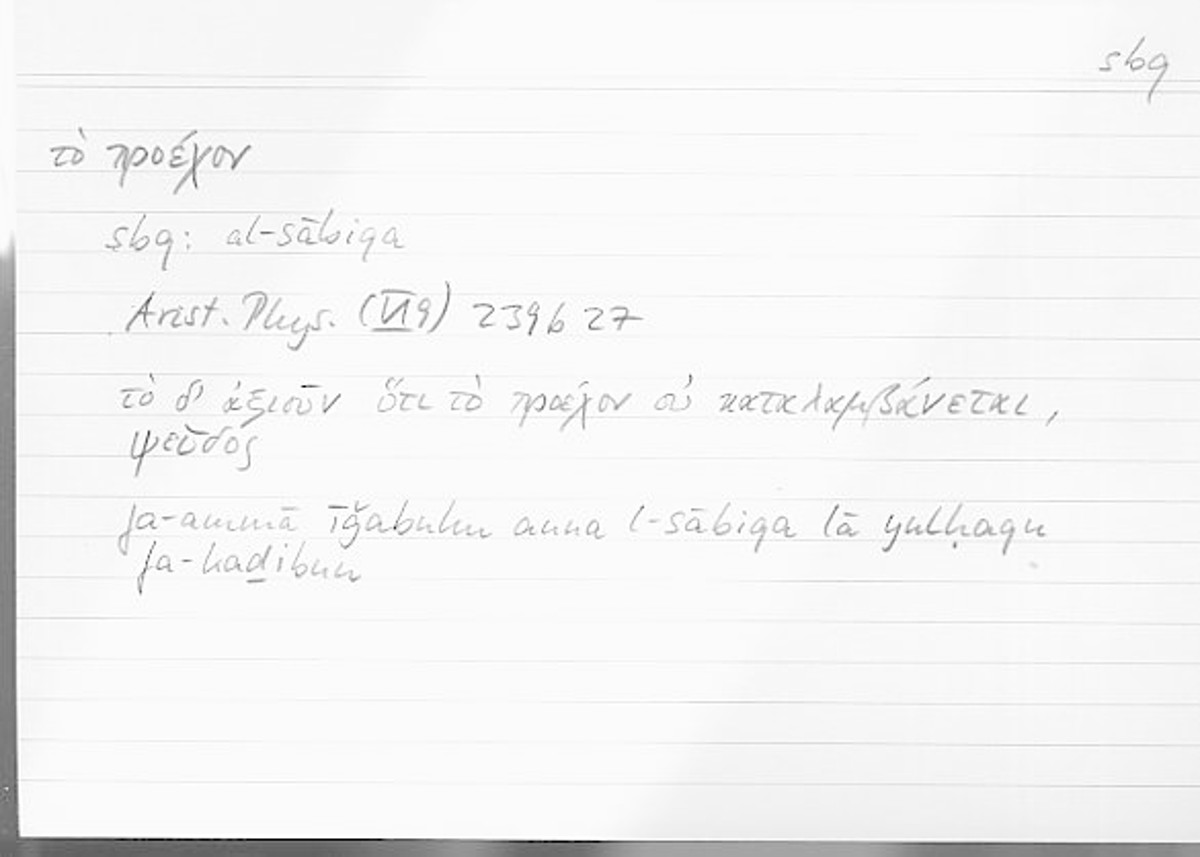 sbq
τὸ προέχον
sbq: al-sābiqa
Arist. Phys. (VI9) 239b27
τὸ δ' ἀξιοῦν ὅτι τὸ προέχον οὐ καταλαμβάνεται,
ψεῦδος
fa-ammā īǧābuhu anna l-sābiqa lā yulḥaqu
fa-kaḏibun